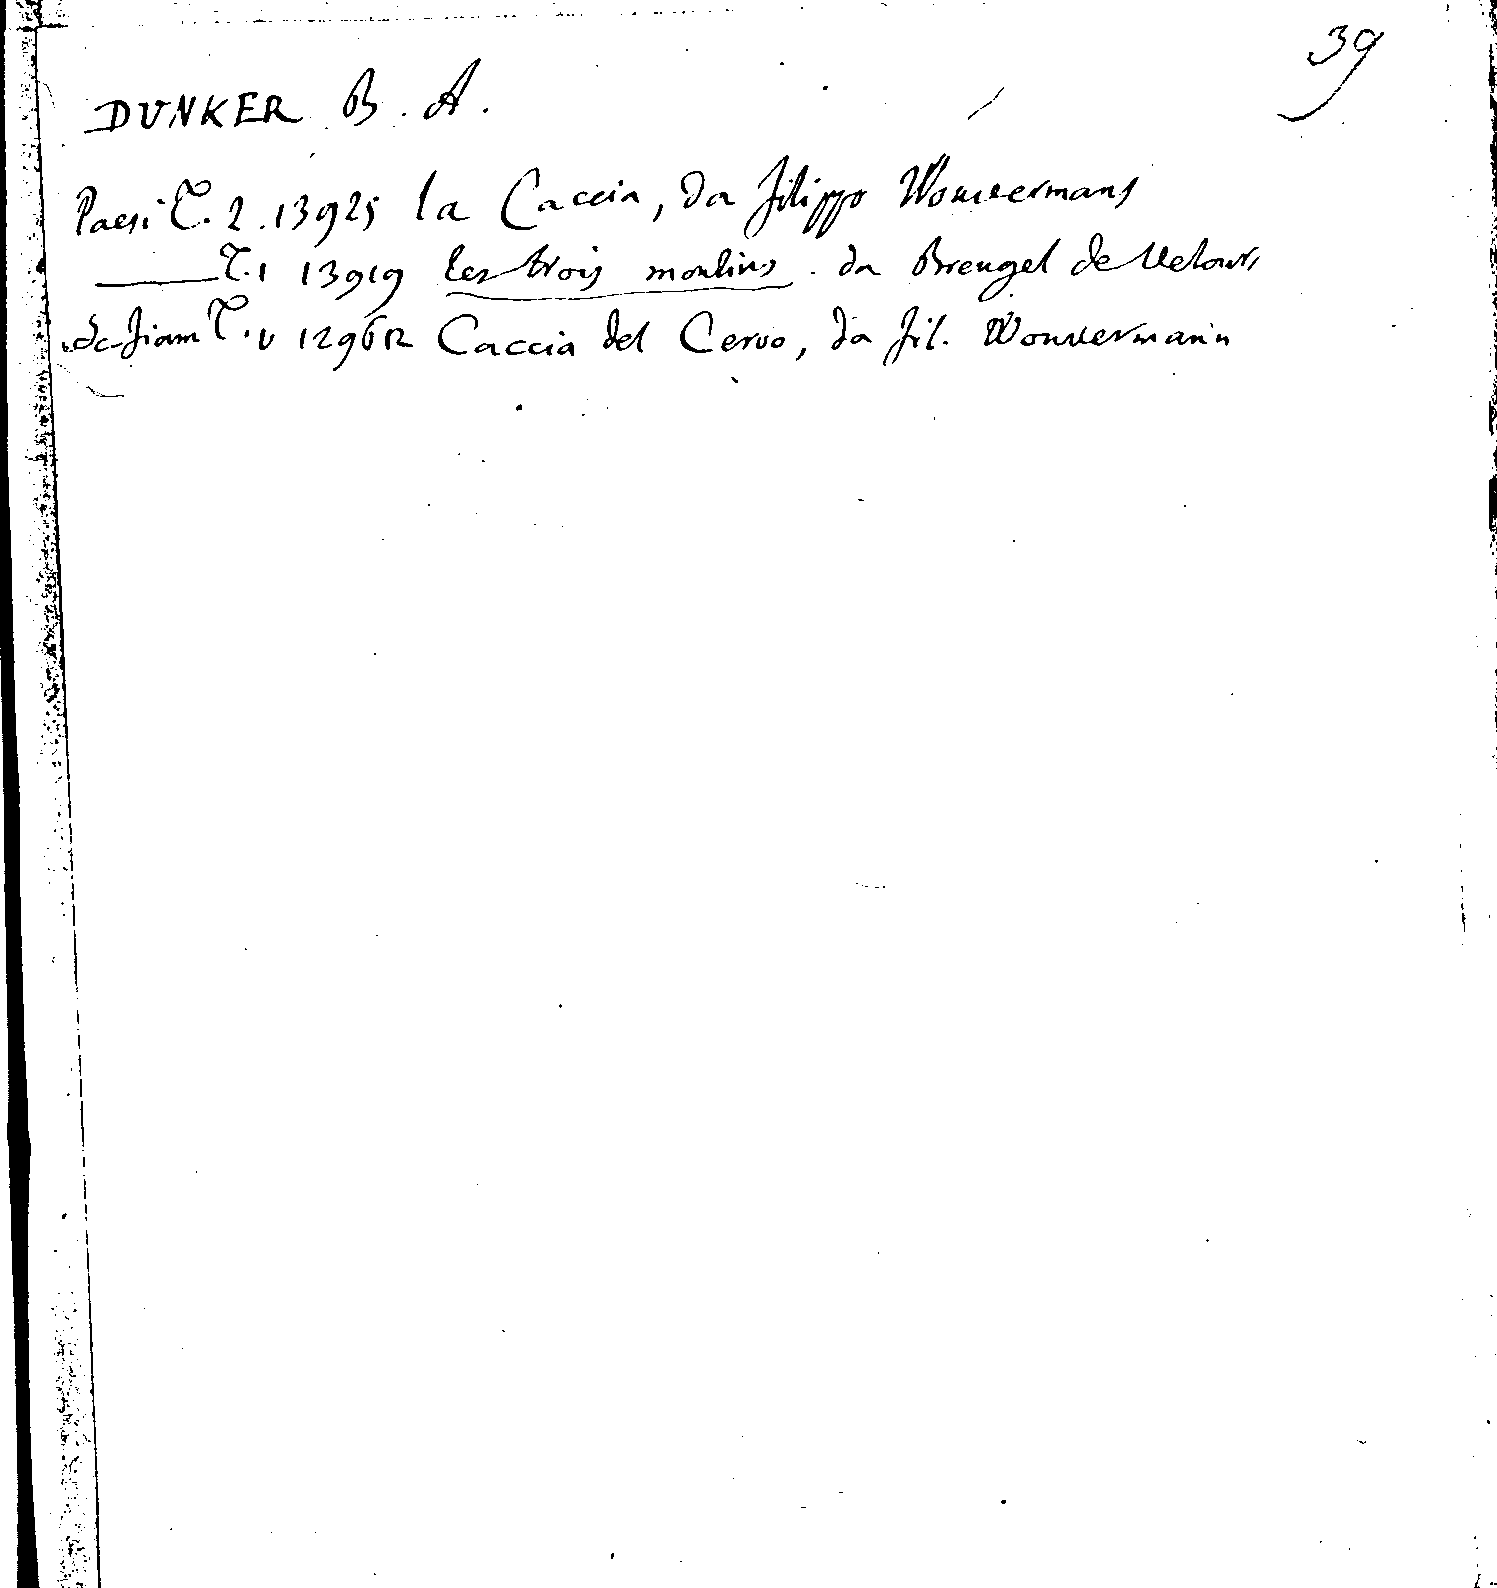 39
DUNKER B. A.
Paesi T. 2. 13925 la Caccia, da Filippo Wouwermans
T. 1 13919 les trois moulins. da Breugel de Velours
Sc. fiam T. V 12962 Caccia del Cervo, da Fil. Wouvermann